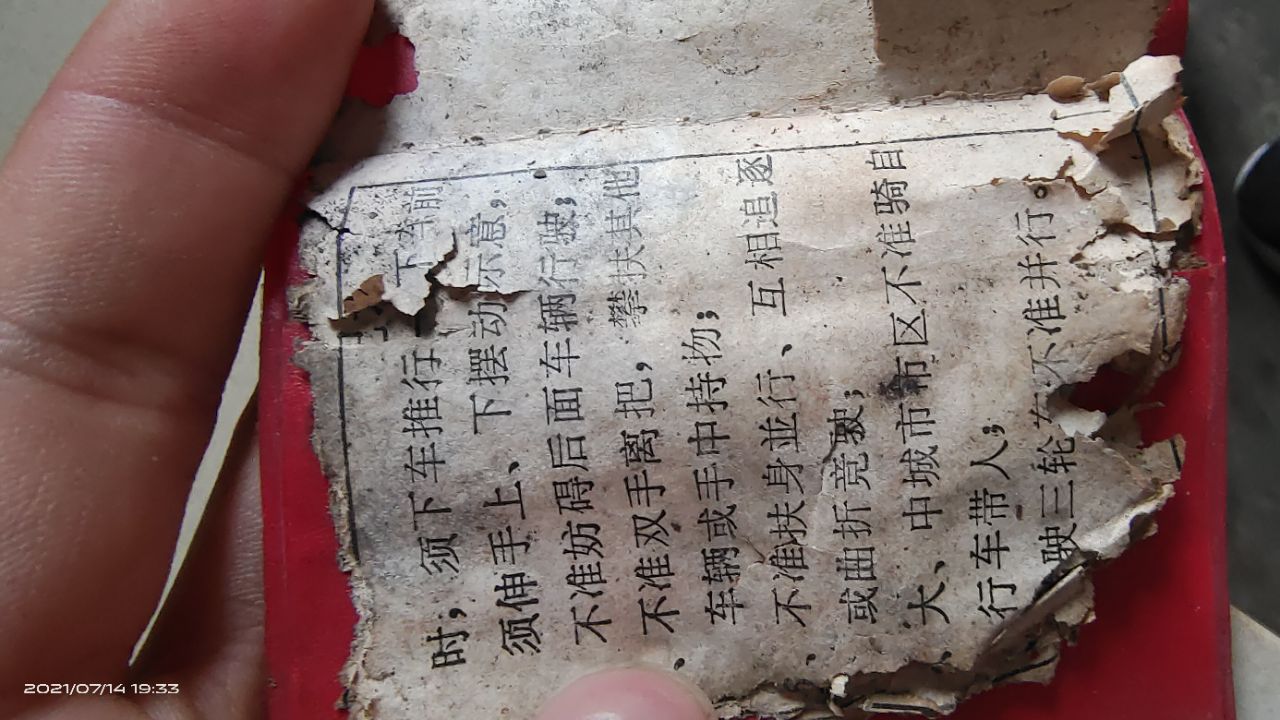 时，须下车推行 下车前
须伸手上、下摆动示意，
不准妨碍后面车辆行驶；
不准双手离把，攀扶其他
车辆或手中持物；
不准扶身並行、互相追逐
或曲折竞驶；
大、中城市市区不准骑自
行车带人；
驶三轮车不准并行。
2021/07/14 19:33